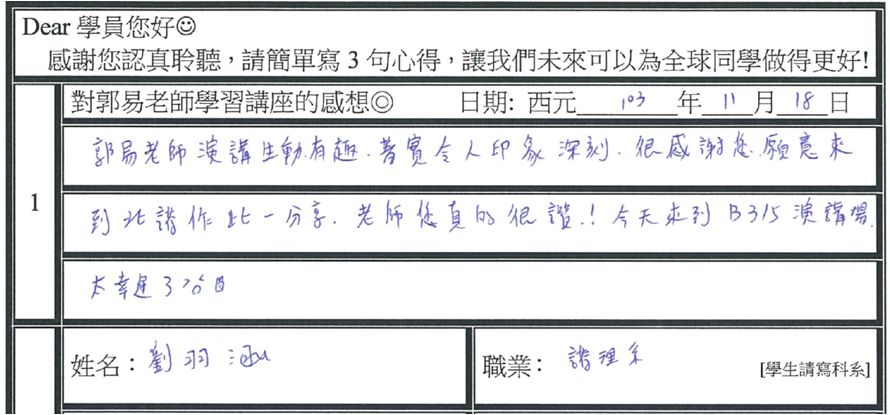 Dear 學員您好☺
感謝您認真聆聽，請簡單寫3句心得，讓我們未來可以為全球同學做得更好!
對郭易老師學習講座的感想◎ 日期: 西元 103 年 11 月 18 日
1
郭易老師演講生動有趣.著實令人印象深刻.很感謝您願意來
到北護作此一分享.老師您真的很讚.!今天來到B315演講場.
太幸運了
姓名：劉羽涵
職業： 護理系 [學生請寫科系]